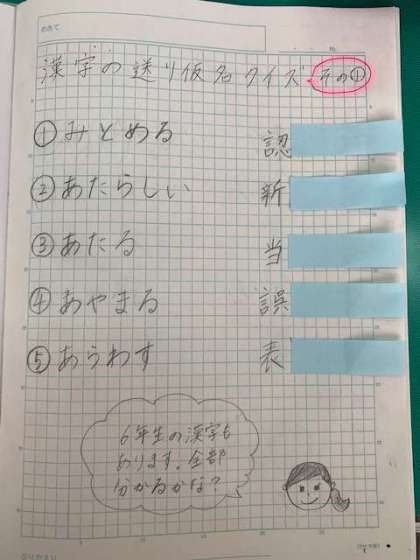 めあて
漢字の送り仮名クイズ その①
①みとめる 認
②あたらしい 新
③あたる 当
④あやまる 誤
⑤あらわす 表
6年生の漢字も
あります。全部
分かるかな?